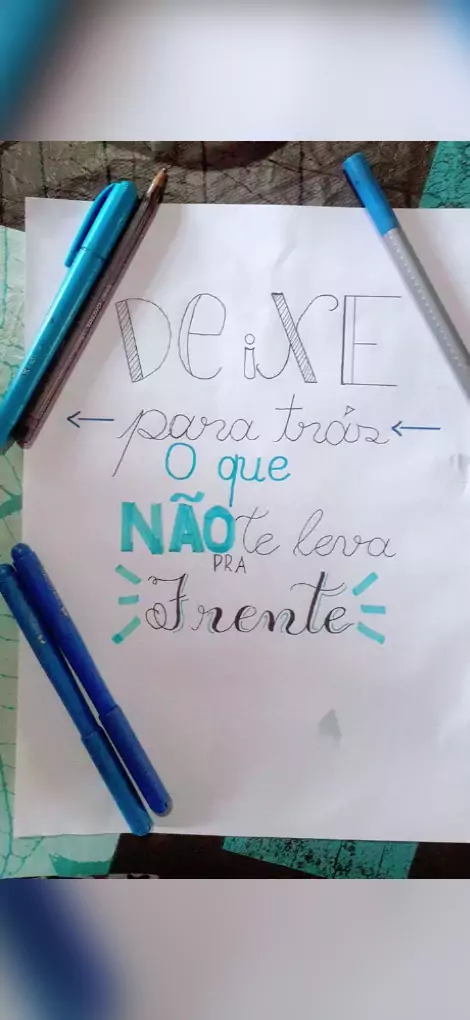 DEiXE
para trás
O que
NÃO te leva
PRA
Frente